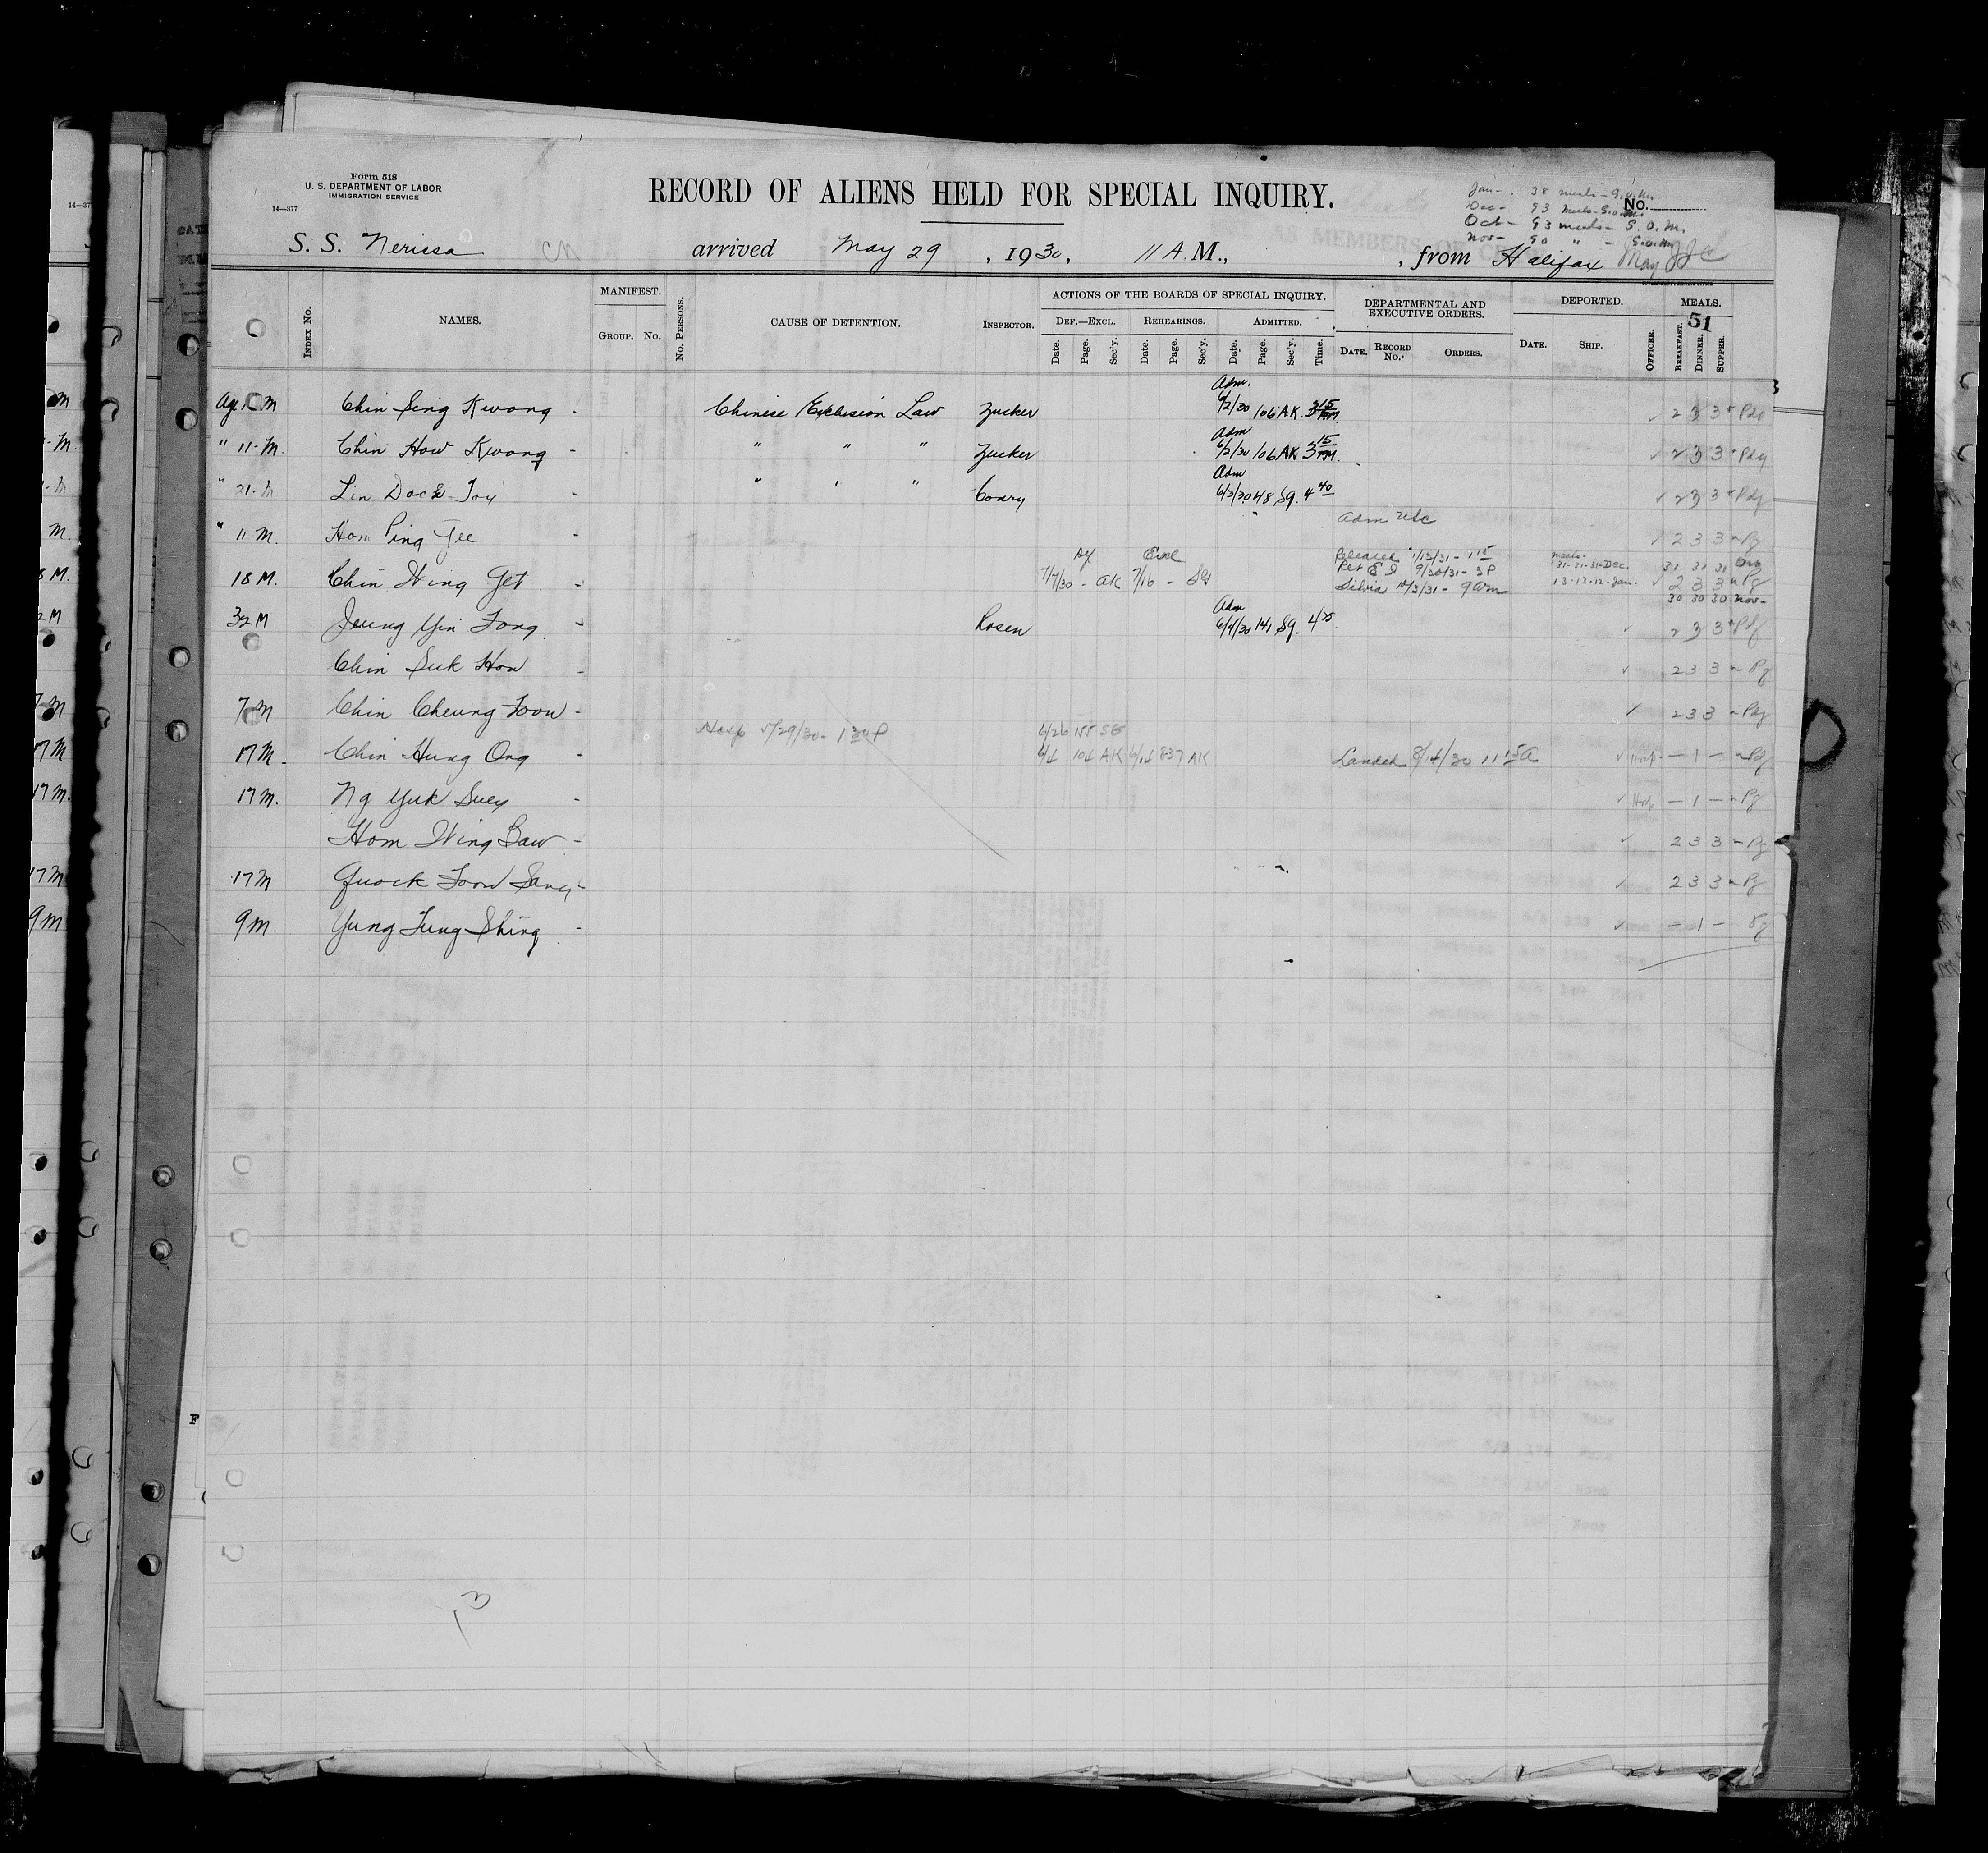 Form 518
U. S. DEPARTMENT OF LABOR
IMMIGRATION SERVICE
14—377
RECORD OF ALIENS HELD FOR SPECIAL INQUIRY.
No.
Jan- 38 meals - S.O.M.
Dec- 93 meals - S.O.M.
Oct - 93 meals - S. O. M.
Nov- 90 " - S.O.M.
S. S. Nerissa arrived May 29, 1930, 11 A.M., from Halifax May
INDEX No. NAMES. MANIFEST. GROUP. No. No. PERSONS. CAUSE OF DETENTION. INSPECTOR. ACTIONS OF THE BOARDS OF SPECIAL INQUIRY. DEPARTMENTAL AND EXECUTIVE ORDERS. DEPORTED. MEALS.
DEF.—EXCL. REHEARINGS. ADMITTED. 51
Date. Page. Sec'y. Date. Page. Sec'y. Date. Page. Sec'y. Time. DATE. RECORD No. ORDERS. DATE. SHIP. OFFICER. BREAKFAST. DINNER. SUPPER.
Adm.
Chin Sing Kwong Chinese Exclusion Law Zucker 6/2/30 106 AK 3 15 PM. 2 3 3
Adm
" 11-M. Chin How Kwong " " " Zucker 6/2/30 106 AK 3 15 PM. 2 3 3
Adm
" 21-M Lin Dock Toy " " " Conry 6/3/30 48 Sg. 4 40 2 3 3
Adm USC
" 11 M. Hom Ping Jee 2 3 3
Def Excl Released 1/13/31 - 1 15 meals-
Ret E I 9/30/31 - 3 P 31-31-31-Dec. 31 31 31
18 M. Chin Wing Get 7/7/30 - AK 7/16 - Sg Silvia 10/3/31 - 9 am 13-13-12-Jan. 2 3 3
30 30 30 Nov-
Adm
32 M Jeung Yin Fong Rosen 6/4/30 141 Sg. 4 25 2 3 3
Chin Suk Hon 2 3 3
7 M Chin Cheung Foon 2 3 3
Hosp 5/29/30 - 1 30 P 6/26 155 SG
17 M. Chin Hung Ong 6/4 104 AK 6/14 837 AK Landed 8/14/30 11 15 A Hosp. — 1 —
17 M. Ng Yuk Suey Hosp — 1 —
Hom Wing Baw 2 3 3
17 M Quock Foon Sang 2 3 3
9 M. Yung Fung Shing — 1 —